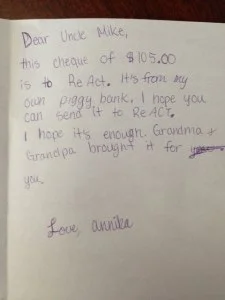 Dear Uncle Mike,
this cheque of $105.00
is to ReAct. It's from my
own piggy bank. I hope you
can send it to ReACT.
I hope it's enough. Grandma +
Grandpa brought it for
you.
Love, annika